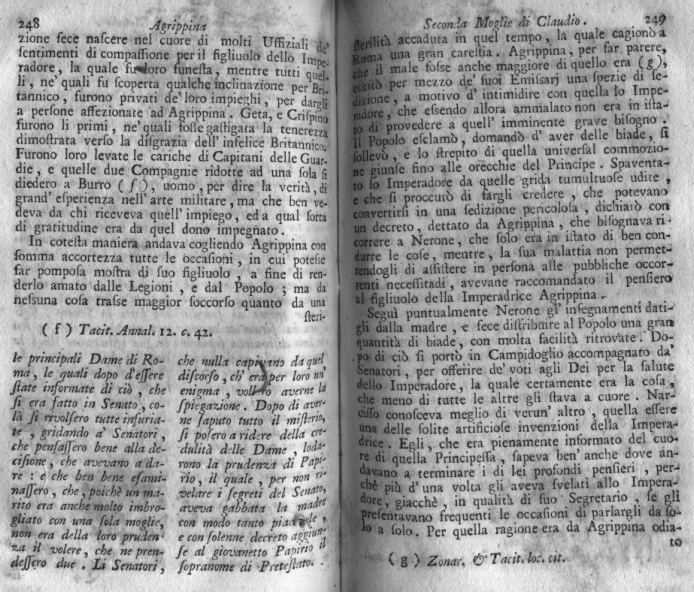 248 Agrippina
zione fece naſcere nel cuore di molti Uffiziali de'
ſentimenti di compaſſione per il figliuolo dello Impe-
radore, la quale fu loro funeſta, mentre tutti quel-
li, ne' quali fu ſcoperta qualche inclinazione per Bri-
tannico, furono privati de' loro impieghi, per dargli
a perſone affezionate ad Agrippina. Geta, e Criſpino
furono li primi, ne' quali foſſe gaſtigata la tenerezza
dimoſtrata verſo la diſgrazia dell' infelice Britannico.
Furono loro levate le cariche di Capitani delle Guar-
die, e quelle due Compagnie ridotte ad una ſola ſi
diedero a Burro (ſ), uomo, per dire la verità, di
grand' eſperienza nell' arte militare, ma che ben ve-
deva da chi riceveva quell' impiego, ed a qual ſorta
di gratitudine era da quel dono impegnato.
In coteſta maniera andava cogliendo Agrippina con
ſomma accortezza tutte le occaſioni, in cui poteſſe
far pompoſa moſtra di ſuo figliuolo, a fine di ren-
derlo amato dalle Legioni, e dal Popolo; ma da
neſſuna coſa traſſe maggior ſoccorſo quanto da una
ſteri-
(f) Tacit. Annal. 12. c. 42.
le principali Dame di Ro-
ma, le quali dopo d'eſſere
ſtate informate di ciò, che
ſi era fatto in Senato, co-
là ſi rivolſero tutte infuria-
te, gridando a' Senatori,
che penſaſſero bene alla de-
ciſione, che avevano a da-
re: e che ben bene eſami-
naſſero, che, poichè un ma-
rito era anche molto imbro-
gliato con una ſola moglie,
non era della loro pruden-
za il volere, che ne pren-
deſſero due. Li Senatori,
che nulla capivano da quel
diſcorſo, ch' era per loro un'
enigma, vollero averne la
ſpiegazione. Dopo di aver-
ne ſaputo tutto il miſterio,
ſi poſero a ridere della cre-
dulità delle Dame, loda-
rono la prudenza di Papi-
rio, il quale, per non ri-
velare i ſegreti del Senato,
aveva gabbata la madre
con modo tanto piacevole,
e con ſolenne decreto aggiun-
ſe al giovanetto Papirio il
ſopranome di Preteſtato.
Seconda Moglie di Claudio. 249
ſterilità accaduta in quel tempo, la quale cagionò a
Roma una gran careſtia. Agrippina, per far parere,
che il male foſſe anche maggiore di quello era (g),
eccitò per mezzo de' ſuoi Emiſſarj una ſpezie di ſe-
dizione, a motivo d' intimidire con quella lo Impe-
radore, che eſſendo allora ammalato non era in iſta-
to di provedere a quell' imminente grave biſogno.
Il Popolo eſclamò, domandò d' aver delle biade, ſi
ſollevò, e lo ſtrepito di quella univerſal commozio-
ne giunſe fino alle orecchie del Principe. Spaventa-
to lo Imperadore da quelle grida tumultuoſe udite,
e che ſi proccurò di fargli credere, che potevano
convertirſi in una ſedizione pericoloſa, dichiarò con
un decreto, dettato da Agrippina, che biſognava ri-
correre a Nerone, che ſolo era in iſtato di ben con-
durre le coſe, mentre, la ſua malattia non permet-
tendogli di aſſiſtere in perſona alle pubbliche occor-
renti neceſſitadi, avevane raccomandato il penſiero
al figliuolo della Imperadrice Agrippina.
Seguì puntualmente Nerone gl' inſegnamenti dati-
gli dalla madre, e fece diſtribuire al Popolo una gran
quantità di biade, con molta facilità ritrovate. Do-
po di ciò ſi portò in Campidoglio accompagnato da'
Senatori, per offerire de' voti agli Dei per la ſalute
dello Imperadore, la quale certamente era la coſa,
che meno di tutte le altre gli ſtava a cuore. Nar-
ciſſo conoſceva meglio di verun' altro, quella eſſere
una delle ſolite artificioſe invenzioni della Impera-
drice. Egli, che era pienamente informato del cuo-
re di quella Principeſſa, ſapeva ben' anche dove an-
davano a terminare i di lei profondi penſieri, per-
chè più d' una volta gli aveva ſvelati allo Impera-
dore, giacchè, in qualità di ſuo Segretario, ſe gli
preſentavano frequenti le occaſioni di parlargli da ſo-
lo a ſolo. Per quella ragione era da Agrippina odia-
to
(g) Zonar. & Tacit. loc. cit.